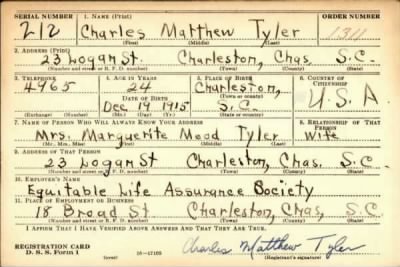 SERIAL NUMBER 1. NAME (Print) ORDER NUMBER
212 Charles Matthew Tyler 1311
(First) (Middle) (Last)
2. ADDRESS (Print)
23 Logan St. Charleston, Chas, S.C.
(Number and street or R. F. D. number) (Town) (County) (State)
3. TELEPHONE 4. AGE IN YEARS 5. PLACE OF BIRTH 6. COUNTRY OF CITIZENSHIP
4965 24 Charleston, U.S.A
DATE OF BIRTH (Town or county)
Dec 19 1915 S.C.
(Exchange) (Number) (Mo.) (Day) (Yr.) (State or country)
7. NAME OF PERSON WHO WILL ALWAYS KNOW YOUR ADDRESS 8. RELATIONSHIP OF THAT PERSON
Mrs. Marguerite Mood Tyler Wife
(Mr., Mrs., Miss) (First) (Middle) (Last)
9. ADDRESS OF THAT PERSON
23 Logan St Charleston, Chas. S.C.
(Number and street or R. F. D. number) (Town) (County) (State)
10. EMPLOYER'S NAME
Equitable Life Assurance Society
11. PLACE OF EMPLOYMENT OR BUSINESS
18 Broad St Charleston, Chas, S.C.
(Number and street or R. F. D. number) (Town) (County) (State)
I AFFIRM THAT I HAVE VERIFIED ABOVE ANSWERS AND THAT THEY ARE TRUE.
REGISTRATION CARD
D. S. S. Form 1 (over) 16—17105 Charles Matthew Tyler